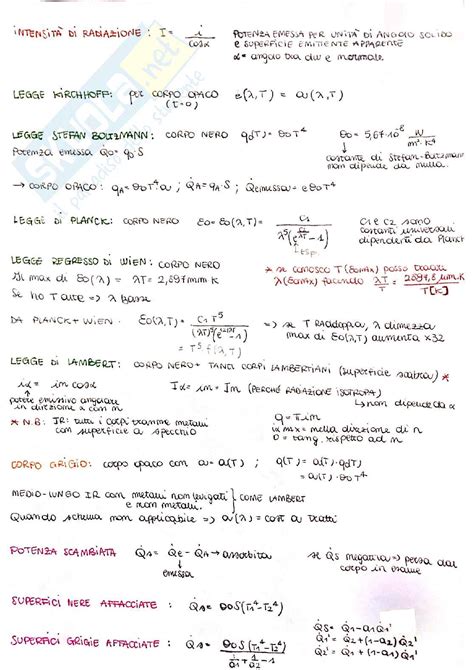 INTENSITÀ DI RADIAZIONE : I = i / cosα
POTENZA EMESSA PER UNITÀ DI ANGOLO SOLIDO
E SUPERFICIE EMITTENTE APPARENTE
α = angolo tra dω e normale
LEGGE KIRCHHOFF: per CORPO OPACO (τ=0) e(λ,T) = a(λ,T)
LEGGE STEFAN BOLTZMANN: CORPO NERO q0(T) = σ0T⁴ σ0 = 5,67·10⁻⁸ W/m²·K⁴
Potenza emessa Q̇0 = q0·S
costante di Stefan-Boltzmann
non dipende da nulla.
→ CORPO OPACO: qA = σ0T⁴a ; Q̇A = qA·S ; Q̇emessa = eσ0T⁴
LEGGE DI PLANCK: CORPO NERO ε0 = ε0(λ,T) = C1 / λ⁵(e^(C2/λT) - 1)
C1 e C2 sono
costanti universali
dipendenti da Planck
LEGGE REGRESSO DI WIEN: CORPO NERO
Gli max di ε0(λ) = λT = 2,897 mm K
Se ho T alte ⇒ λ bassa
* se conosco T(ε0max) posso trovare
λ(ε0max) facendo
DA PLANCK + WIEN:
⇒ se T raddoppia, λ dimezza
max di ε0(λ,T) aumenta x32
T⁵·f(λ,T)
LEGGE DI LAMBERT: CORPO NERO + TANTI CORPI LAMBERTIANI (superficie scabra) *
iα = in cosα Iα = in = In (PERCHÉ RADIAZIONE ISOTROPA)
potere emissivo angolare
in direzione α con n
non dipende da α
* N.B: IR: tutti i corpi tranne metalli
con superficie a specchio
q = π in
in max = nella direzione di n
0 = tang. rispetto ad n
CORPO GRIGIO: corpo opaco con a = a(T) ; q(T) = a(T)·q0(T)
= a(T)·σ0T⁴
MEDIO-LUNGO IR con metalli non levigati
e non metalli.
COME LAMBERT
Quando schema non applicabile ⇒ a(λ) = cost a tratti
POTENZA SCAMBIATA Q̇s = Q̇e - Q̇A → assorbita
emessa
se Q̇s negativa ⇒ persa dal
corpo in esame
SUPERFICI NERE AFFACCIATE : Q̇s = σ0S(T1⁴-T2⁴)
SUPERFICI GRIGIE AFFACCIATE : Q̇s = σ0S(T1⁴-T2⁴) / (1/a1 + 1/a2 - 1)
Q̇s = Q̇1' - a1Q̇2'
Q̇1' = Q̇1 + (1-a1)Q̇2'
Q̇2' = Q̇2 + (1-a2)Q̇1'